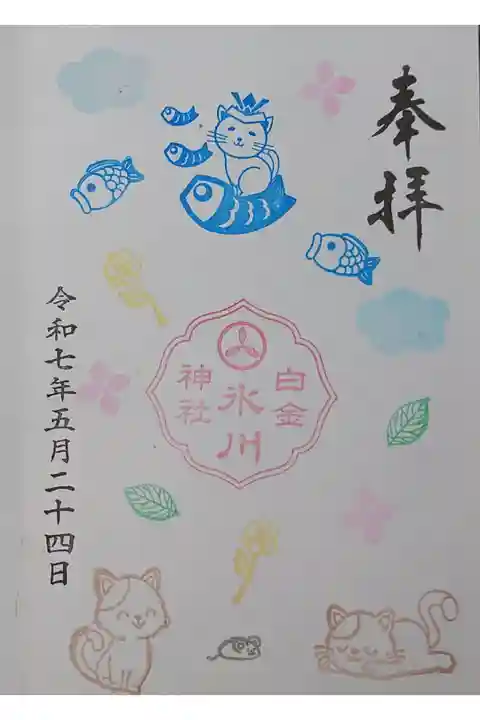 奉拝
白金
氷川
神社
令和七年五月二十四日